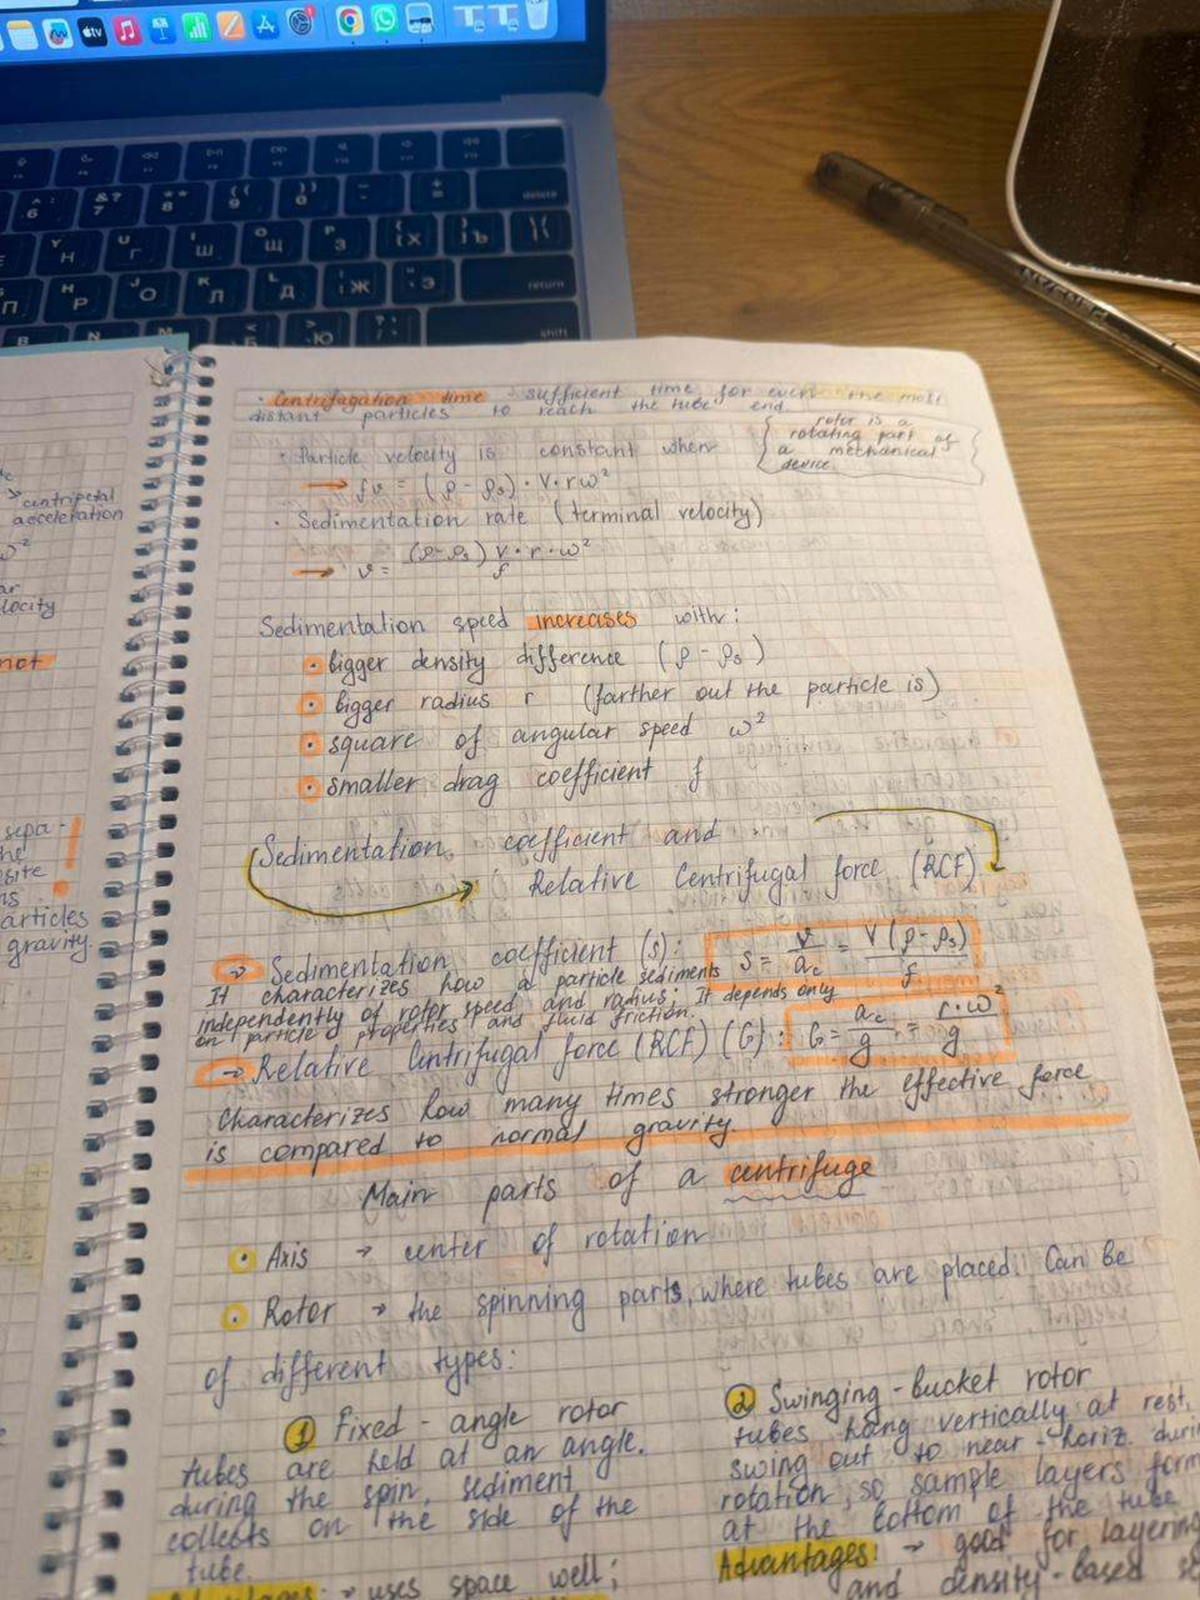 tv
delete
return
shift
Y Н
U Г
I Ш
O Щ
P З
{ [ Х
} ] Ъ
П
H Р
J О
K Л
L Д
Ж
Э
PENSAN
centripetal
acceleration
locity
not
sepa-
he
site
ns
articles
gravity.
· Centrifagation time - sufficient time for even the most
distant particles to reach the tube end.
rotor is a
rotating part of
a mechanical
device
· Particle velocity is constant when
→ fv = (ρ - ρs) · V · rω²
· Sedimentation rate (terminal velocity)
→ v = (ρ-ρs) V · r · ω² / f
Sedimentation speed increases with:
• bigger density difference (ρ - ρs)
• bigger radius r (farther out the particle is)
• square of angular speed ω²
• smaller drag coefficient f
Sedimentation coefficient and
Relative Centrifugal force (RCF)
→ Sedimentation coefficient (s): s = v/ac = V(ρ-ρs)/f
It characterizes how a particle sediments
independently of rotor speed and radius; It depends only
on particle properties and fluid friction.
→ Relative Centrifugal force (RCF) (G): G = ac/g = r·ω²/g
Characterizes how many times stronger the effective force
is compared to normal gravity.
Main parts of a centrifuge
• Axis → center of rotation
• Rotor → the spinning parts, where tubes are placed. Can be
of different types:
1 Fixed - angle rotor
tubes are held at an angle.
during the spin, sediment
collects on the side of the
tube.
Advantages: → uses space well;
2 Swinging - bucket rotor
tubes hang vertically at rest,
swing out to near-horiz. duri
rotation, so sample layers form
at the bottom of the tube
Advantages: → good for layering
and density-based se